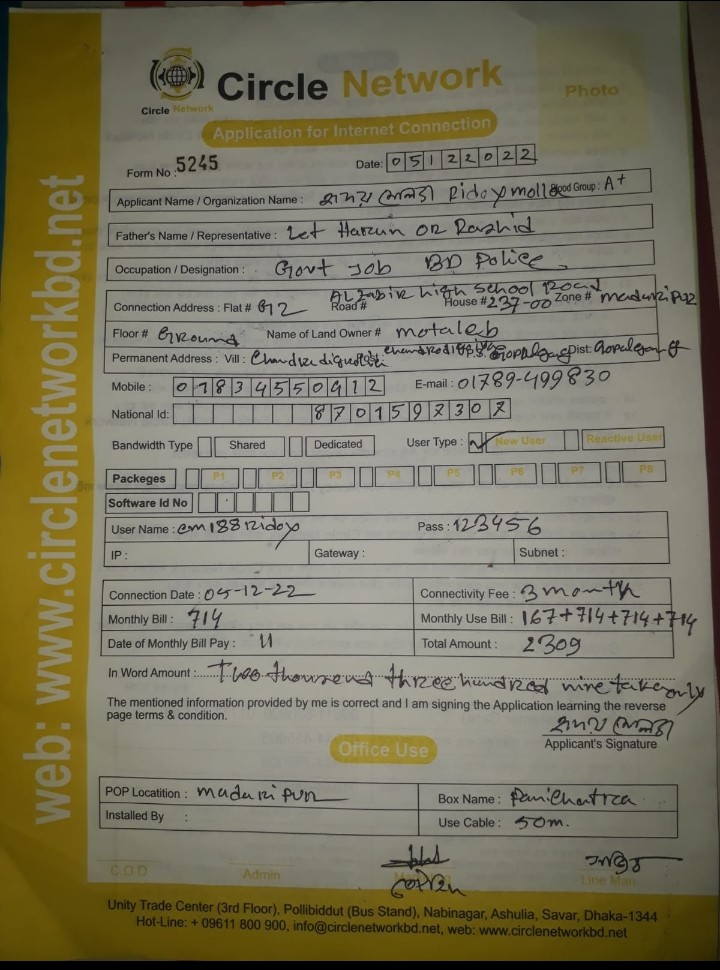 Circle Network
Circle Network
Photo
Application for Internet Connection
Form No : 5245 Date: 05122022
Applicant Name / Organization Name : হৃদয় মোল্লা Ridoy molla Blood Group : A+
Father's Name / Representative : Let Harun or Rashid
Occupation / Designation : Govt Job BD Police
Connection Address : Flat # G2 Road # AL Zabir high school Road House # 237-00 Zone # madaripur
Floor # Ground Name of Land Owner # motaleb
Permanent Address : Vill : Chandradigholia P.S: Gopalgang Dist: Gopalgang
Mobile : 01834550912 E-mail : 01789-499830
National Id: 8701597307
Bandwidth Type Shared Dedicated User Type : ✓ New User Reactive User
Packeges P1 P2 P3 P4 P5 P6 P7 P8
Software Id No
User Name : cm188ridoy Pass : 123456
IP : Gateway : Subnet :
Connection Date : 05-12-22 Connectivity Fee : 3 month
Monthly Bill : 714 Monthly Use Bill : 167+714+714+714
Date of Monthly Bill Pay : 11 Total Amount : 2309
In Word Amount : Two thousend three hundred nine taka only
The mentioned information provided by me is correct and I am signing the Application learning the reverse
page terms & condition.
হৃদয় মোল্লা
Applicant's Signature
Office Use
POP Locatition : madaripur Box Name : Panichatra
Installed By : Use Cable : 50m.
C.O.D Admin Line Man
Unity Trade Center (3rd Floor), Pollibiddut (Bus Stand), Nabinagar, Ashulia, Savar, Dhaka-1344
Hot-Line: + 09611 800 900, info@circlenetworkbd.net, web: www.circlenetworkbd.net
web: www.circlenetworkbd.net